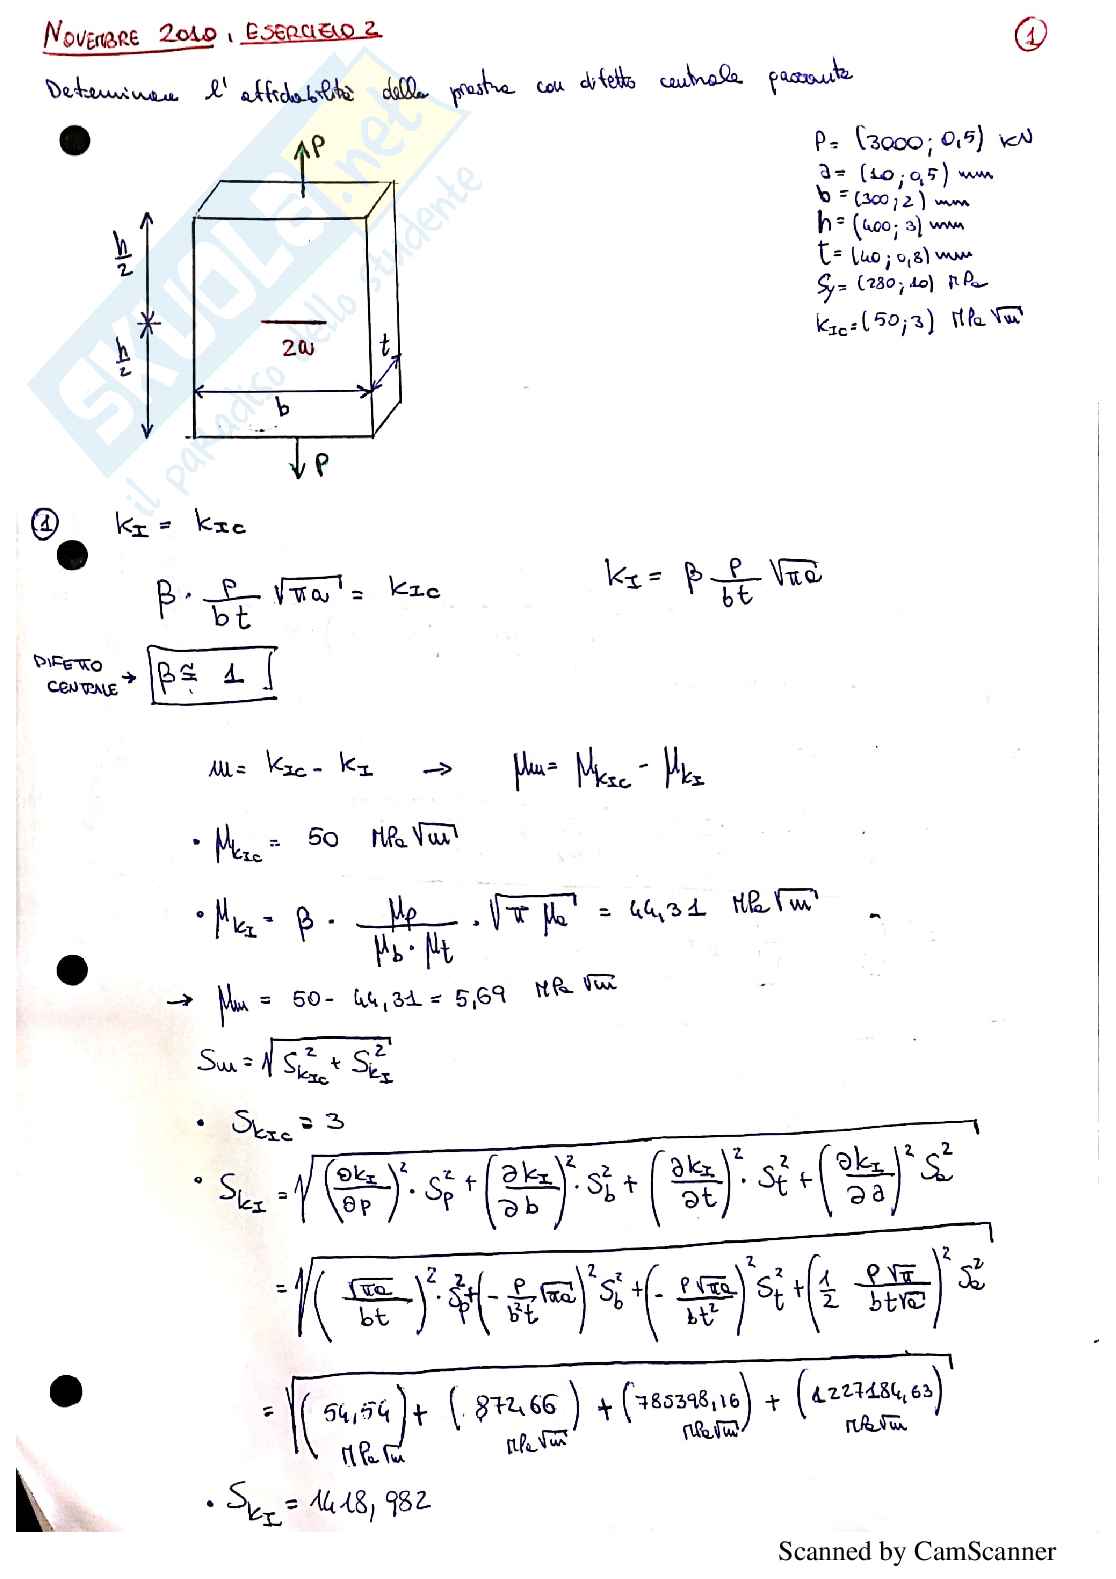 NOVEMBRE 2010, ESERCIZIO 2
1
Determinare l'affidabilità della piastra con difetto centrale passante
P = (3000; 0,5) kN
a = (10; 0,5) mm
b = (300; 2) mm
h = (400; 3) mm
t = (40; 0,8) mm
Sy = (280; 10) MPa
K_IC = (50; 3) MPa √m
P
h/2
h/2
2a
t
b
P
SKUOLA.net
il paradiso dello studente
① K_I = K_IC
β · P/(bt) √(πa) = K_IC
K_I = β P/(bt) √(πa)
DIFETTO CENTRALE → β ≅ 1
m = K_IC - K_I → μm = μ_K_IC - μ_K_I
• μ_K_IC = 50 MPa √m
• μ_K_I = β · μp/(μb · μt) · √(π μa) = 44,31 MPa √m
→ μm = 50 - 44,31 = 5,69 MPa √m
Sm = √(S²_K_IC + S²_K_I)
• S_K_IC = 3
• S_K_I = √((∂K_I/∂P)² · S²_P + (∂K_I/∂b)² · S²_b + (∂K_I/∂t)² · S²_t + (∂K_I/∂a)² S²_a)
= √((√(πa)/(bt))² · S²_P + (- P/(b²t) √(πa))² S²_b + (- P√(πa)/(bt²))² S²_t + (1/2 P√π/(bt√a))² S²_a)
= √((54,54 MPa √m) + (872,66 MPa √m) + (785398,16 MPa √m) + (1227184,63 MPa √m))
• S_K_I = 1418,982
Scanned by CamScanner